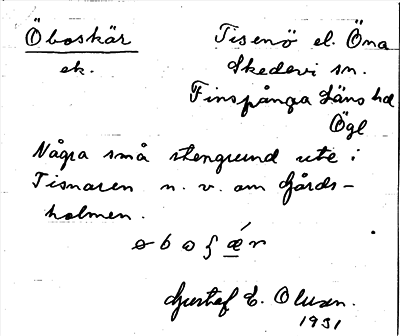 Öboskär Tisenö el. Öna
ek. Skedevi sn.
Finspånga läns hd
Ögl
Några små stengrund ute i
Tisnaren n. v. om Gårds-
holmen.
Gustaf E. Olsson.
1931